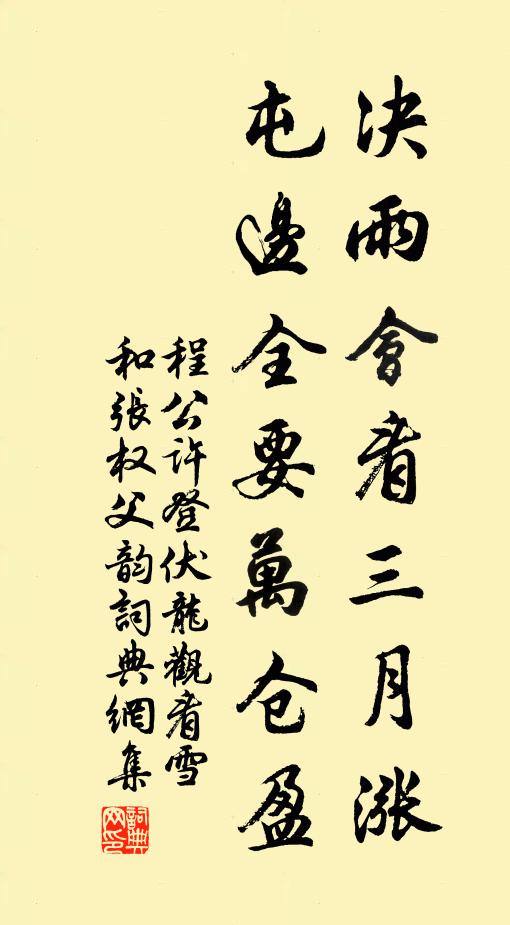 决雨會看三月漲
屯邊全要萬仓盈
程公許登伏龍觀看雪
和張权父韵詞典網集
詞典網印